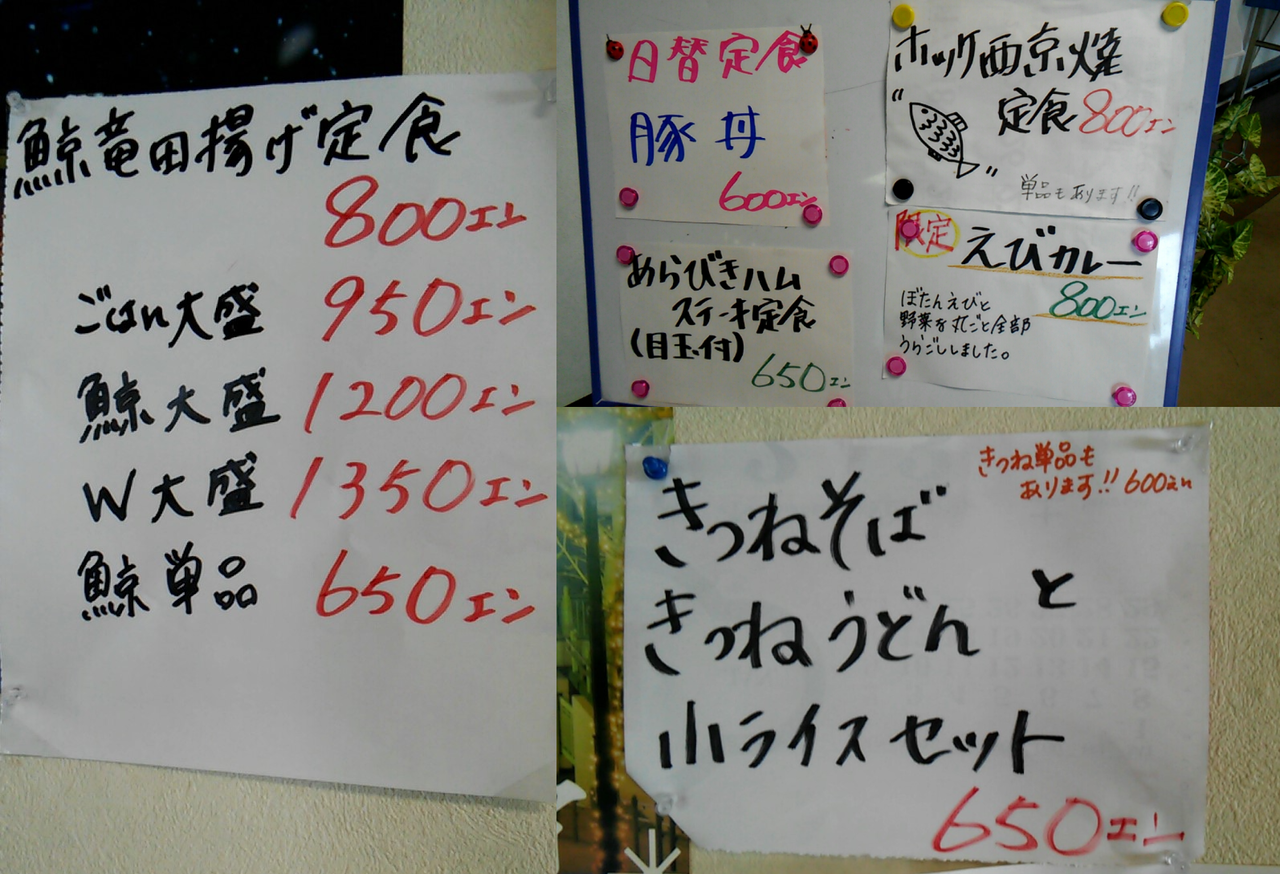 鯨竜田揚げ定食
800エン
ごはん大盛 950エン
鯨大盛 1200エン
W大盛 1350エン
鯨単品 650エン
日替定食
豚丼
600エン
ホッケ西京焼
定食800エン
単品もあります!!
あらびきハム
ステーキ定食
(目玉付)
650エン
限定 えびカレー
800エン
ぼたんえびと
野菜を丸ごと全部
うらごしました。
きつね単品も
あります!! 600エン
きつねそば
きつねうどん と
小ライスセット
650エン